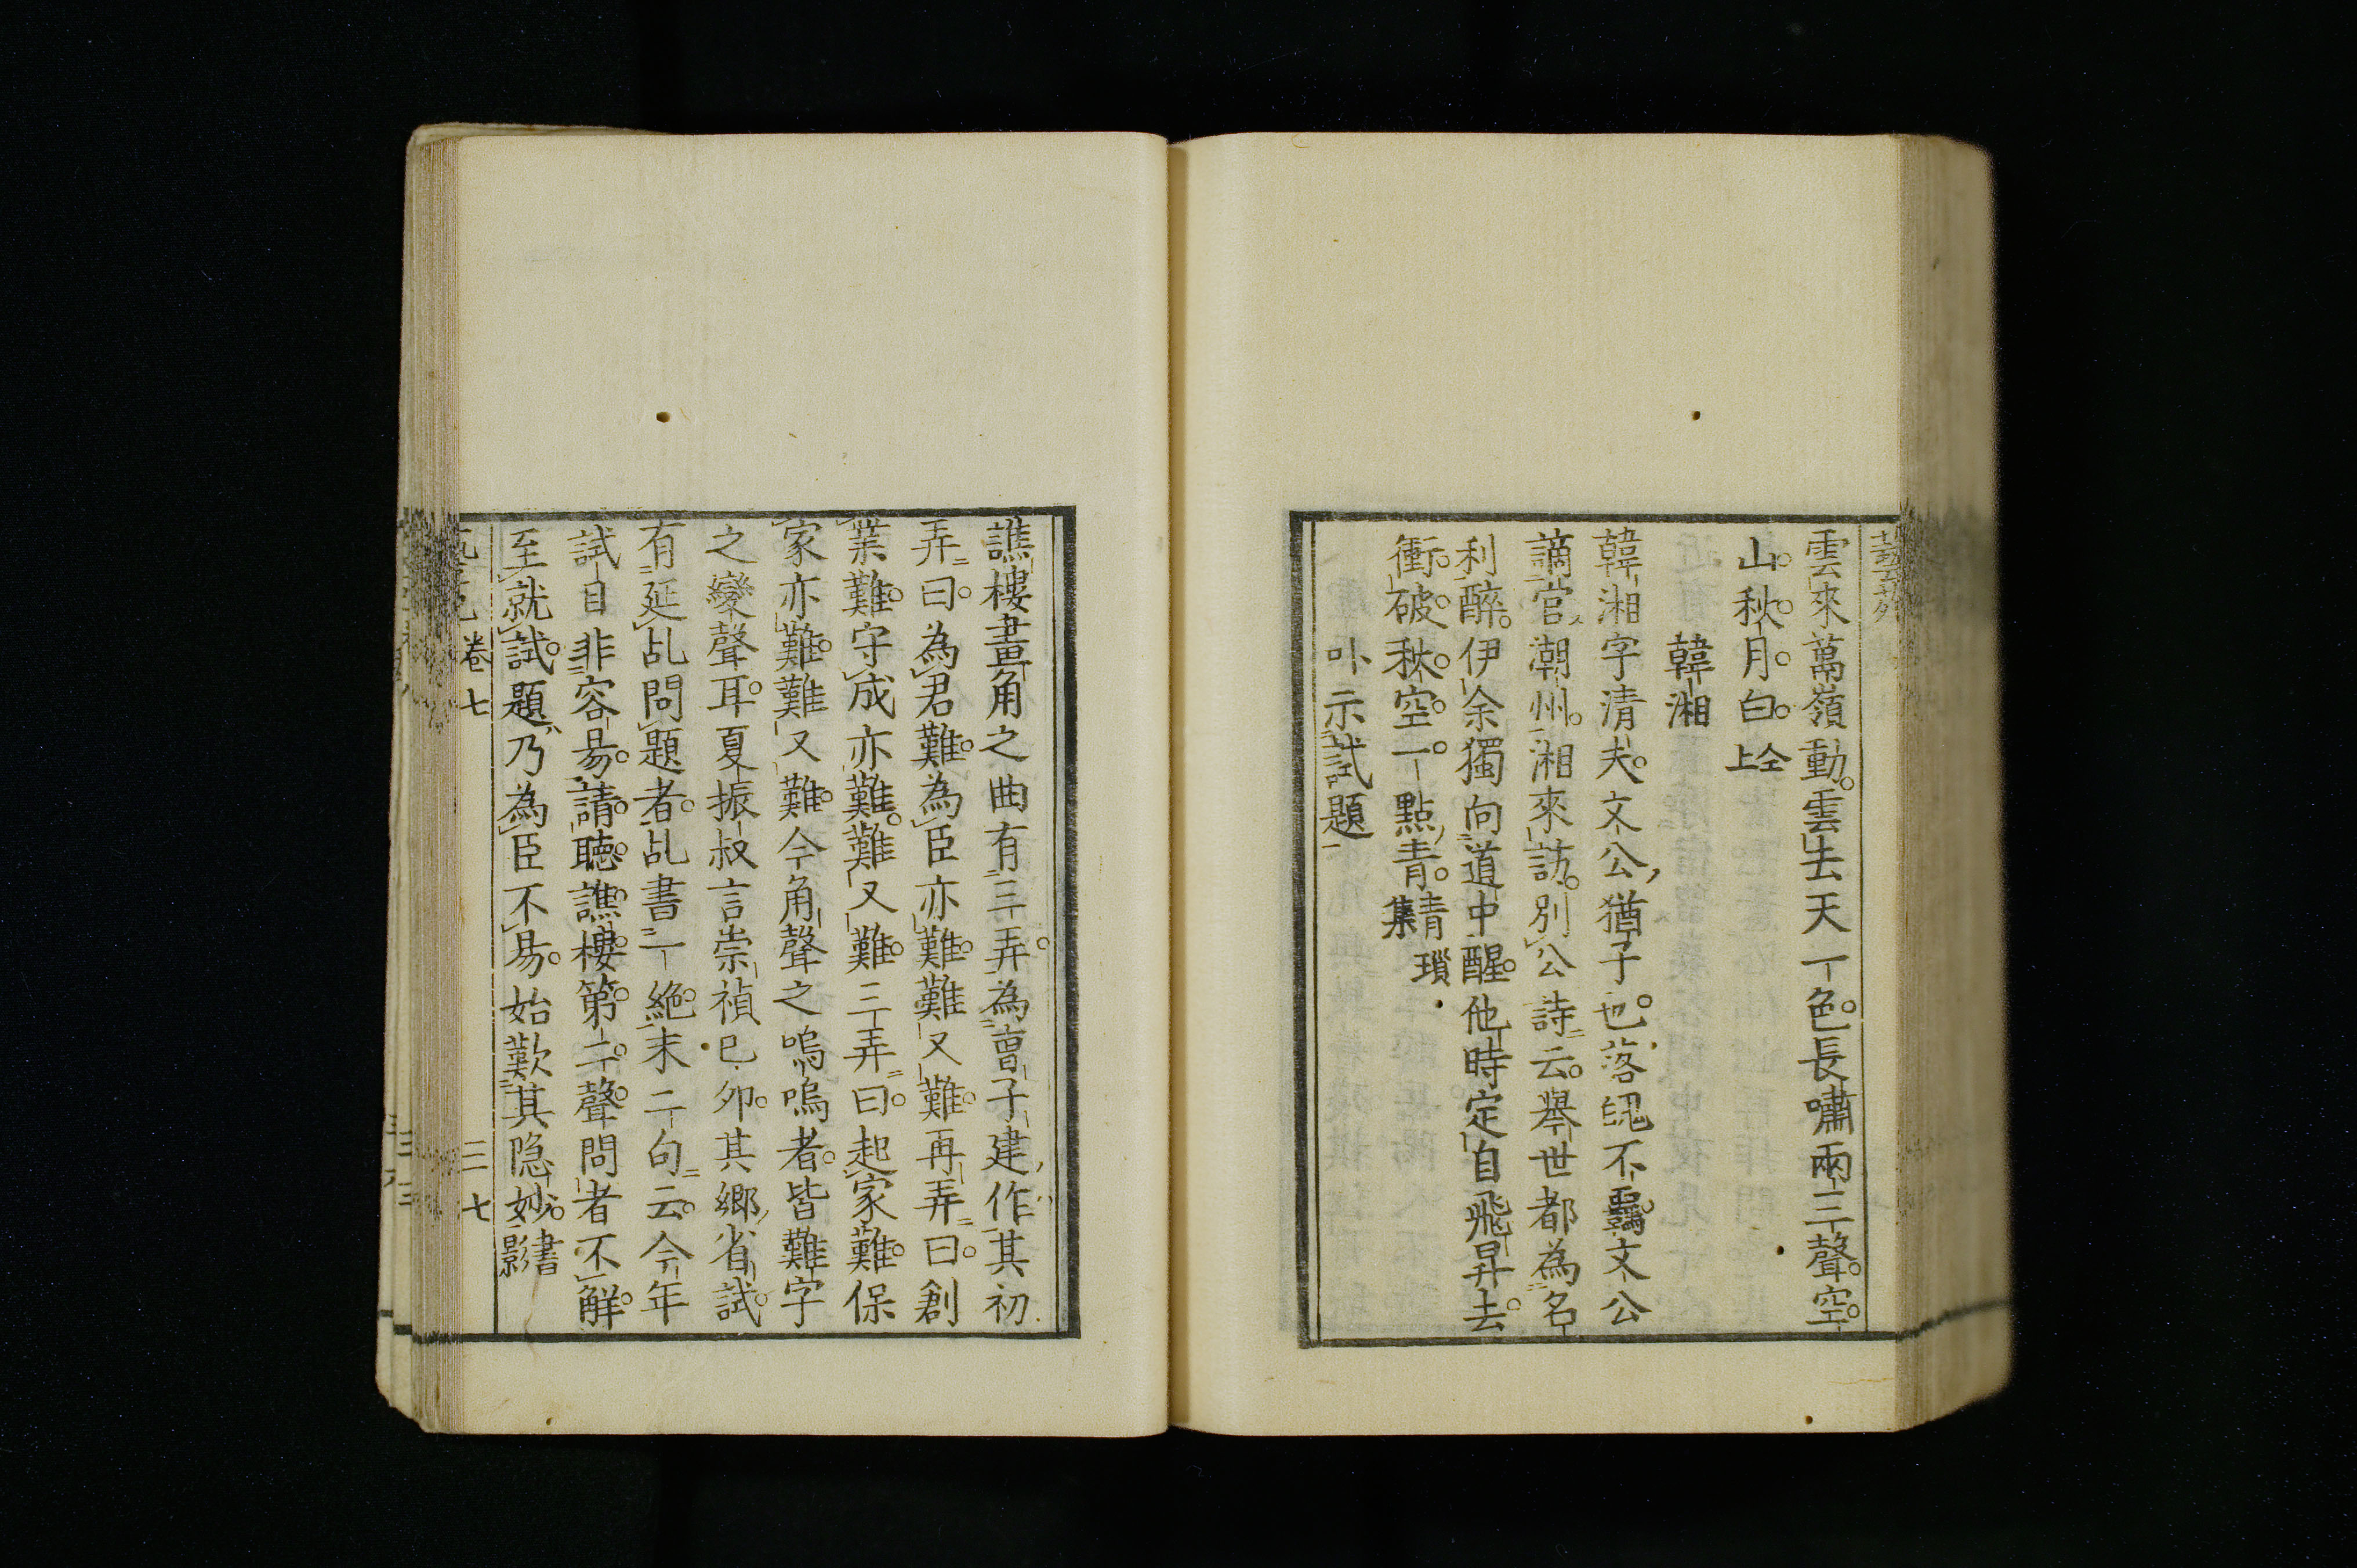 雲來萬嶺動。雲去天一色。長嘯兩三聲。空。
山。秋。月。白。仝上
韓湘
韓湘字清夫。文公猶子也。落魄不羈。文公
謫官潮州。湘來訪。別公詩云。舉世都為名
利醉。伊余獨向道中醒。他時定自飛昇去。
衝。破。秋。空。一。點青。青瑣集
卟示試題
譙樓畫角之曲有三弄。為曺子建作其初
弄曰。為君難。為臣亦難。難又難。再弄曰。創
業難。守成亦難。難又難。三弄曰。起家難。保
家亦難。難又難。今角聲之嗚嗚者。皆難字
之變聲耳。夏振叔言崇禎已夘。其鄉省試。
有延乩問題者。乩書一絶。末二句云。今年
試目非容昜。請。聴。譙。樓。第。二。聲。問者不觧。
至就試。題乃為臣不昜。始歎其隐妙。書影
卷七 三七